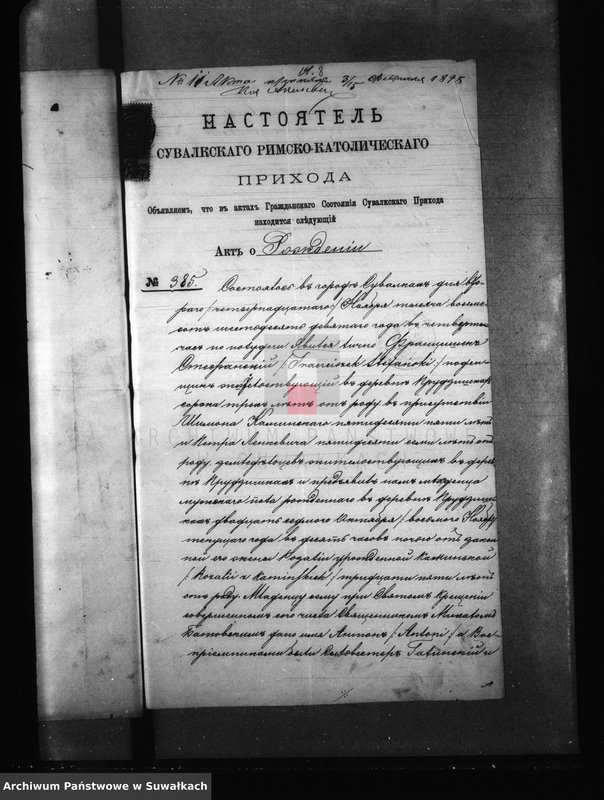 № 11 Акта 3/15 Февраля 1898
НАСТОЯТЕЛЬ
СУВАЛКСКАГО РИМСКО-КАТОЛИЧЕСКАГО
ПРИХОДА
Объявляемъ, что въ актахъ Гражданскаго Состоянія Сувалкскаго Прихода
находится слѣдующій
Актъ о Рожденіи
№ 385. Состоялось въ городѣ Сувалкахъ дня Вто-
раго /:четырнадцатаго:/ Ноября тысяча восемь-
сотъ шестьдесятъ девятаго года въ четвертомъ
часу по полудни. Явился лично Францишекъ
Стефанскій /:Franciszek Stefański:/ поден-
щикъ жительствующій въ деревнѣ
сорока трехъ лѣтъ отъ роду, въ присутствіи
Шимона Каминскаго пятидесяти пяти лѣтъ
и Петра пятидесяти семи лѣтъ отъ
роду, жительствующихъ въ дерев-
нѣ и предъявилъ намъ младенца
мужескаго пола рожденнаго въ деревнѣ
двадцать седьмаго Октября /:восьмаго Ноября:/
текущаго года въ десять часовъ ночью отъ закон-
ной его жены Розаліи урожденной Каминской
/:Rozalii z Kamińskich:/ тридцати пяти лѣтъ
отъ роду. Младенцу сему при Святомъ Крещеніи
совершенномъ его числа Священникомъ
дано имя Антонъ /:Antoni:/ а Вос-
пріемниками были Сильвестеръ и
Archiwum Państwowe w Suwałkach